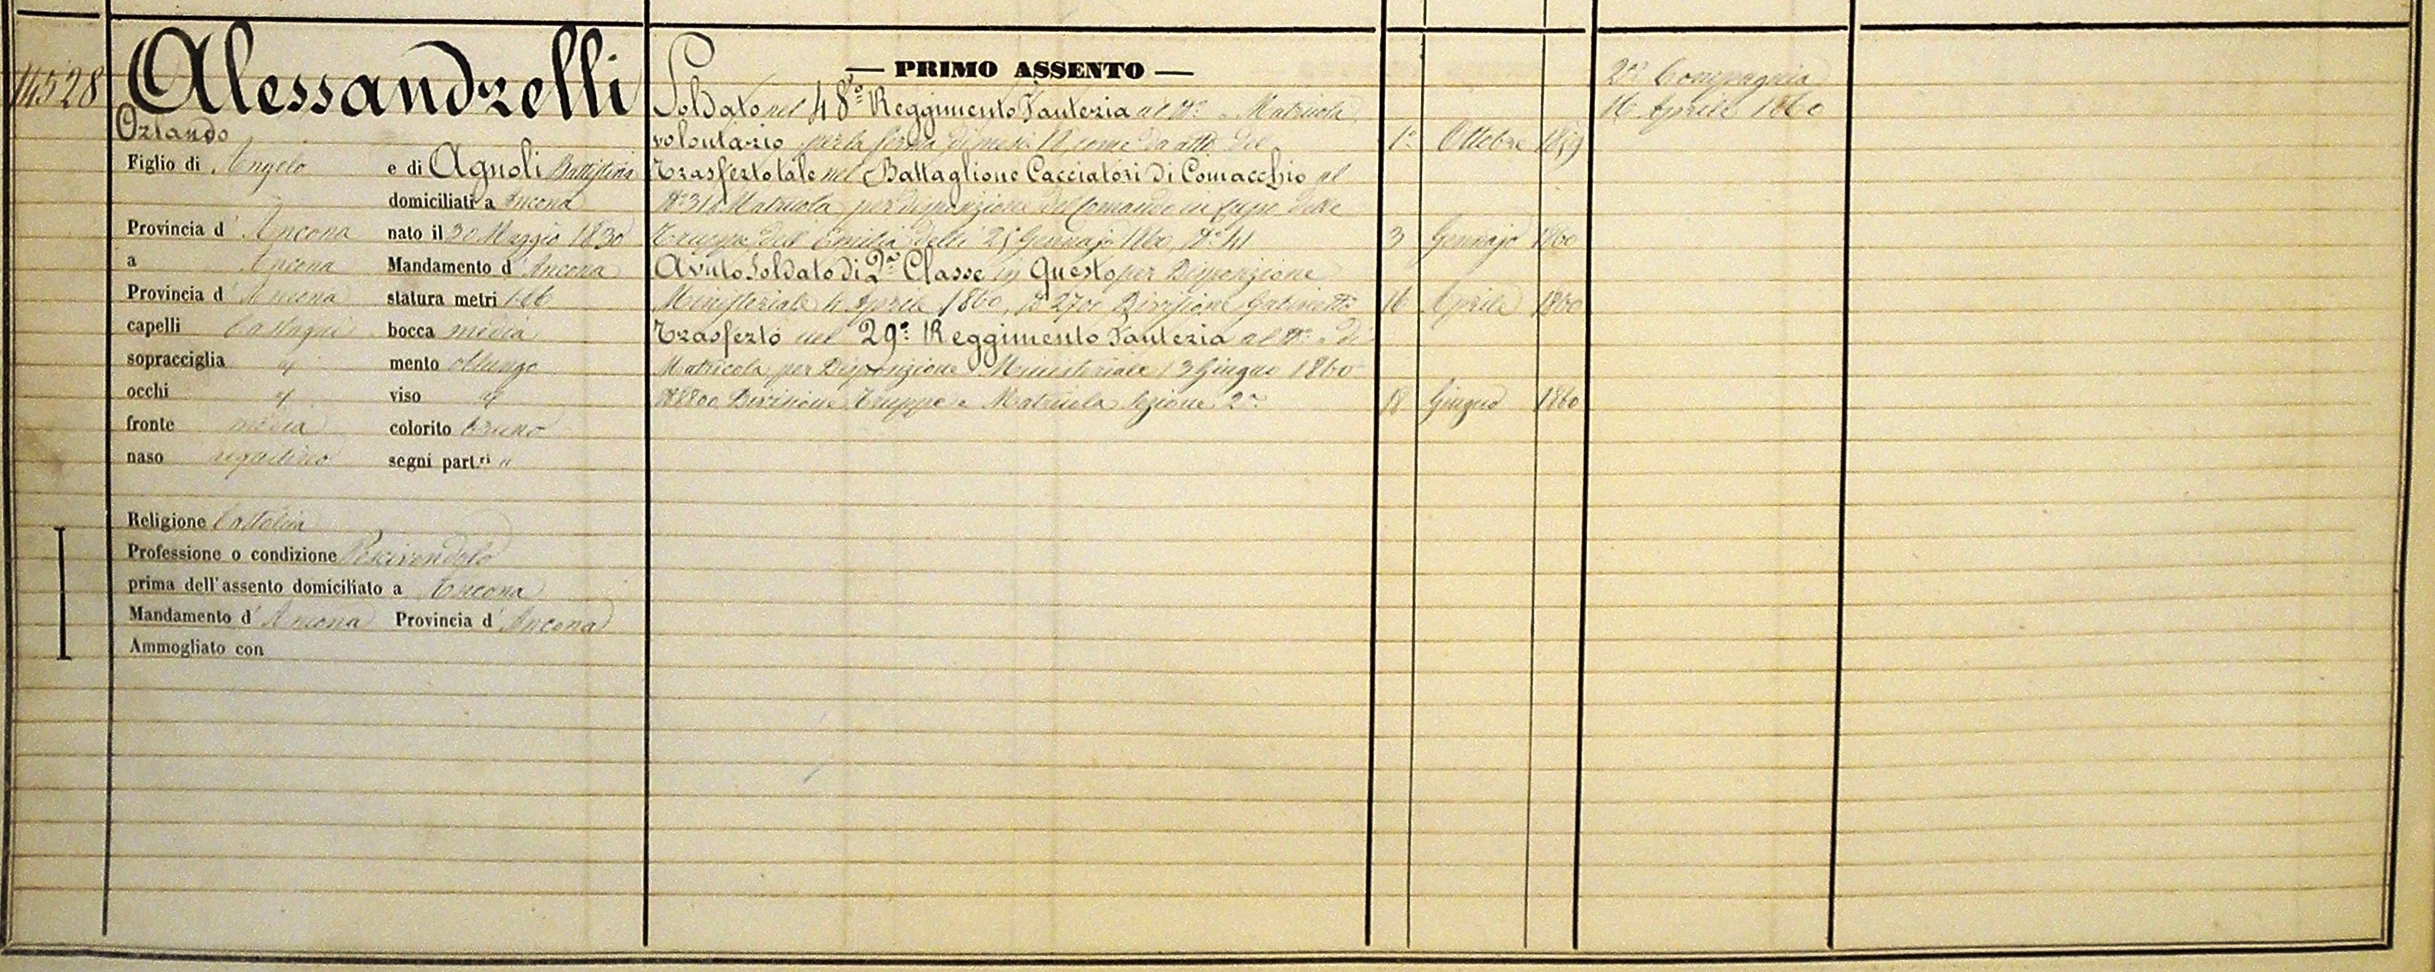 14528 Alessandrelli
Orlando
Figlio di Angelo e di Agnoli Battistina
domiciliati a Ancona
Provincia d' Ancona nato il 30 Maggio 1830
a Ancona Mandamento d' Ancona
Provincia d' Ancona statura metri 1.66
capelli Castagni bocca media
sopracciglia " mento oblungo
occhi " viso "
fronte media colorito bruno
naso segni part.ri "
Religione Cattolica
Professione o condizione Pescivendolo
prima dell'assento domiciliato a Ancona
Mandamento d' Ancona Provincia d' Ancona
Ammogliato con
— PRIMO ASSENTO —
Soldato nel 48° Reggimento Fanteria al N° " Matricola
volontario per la ferma di mesi 18 come da atto del 1° Ottobre 1859
Trasferto tale nel Battaglione Cacciatori di Comacchio al
N° 316 Matricola per disposizione del Comando in Capo delle
Truppe dell'Emilia delli 25 Gennajo 1860, N° 41 3 Gennajo 1860
Avuto Soldato di 2ª Classe in Questo per Disposizione
Ministeriale 4 Aprile 1860, N° Divisione Gabinetto 16 Aprile 1860
Trasferto nel 29° Reggimento Fanteria al N° " di
Matricola per Disposizione Ministeriale 13 Giugno 1860
N° 8800 Divisione Truppe e Matricola Sezione 2ª 18 Giugno 1860
2ª Compagnia
16 Aprile 1860